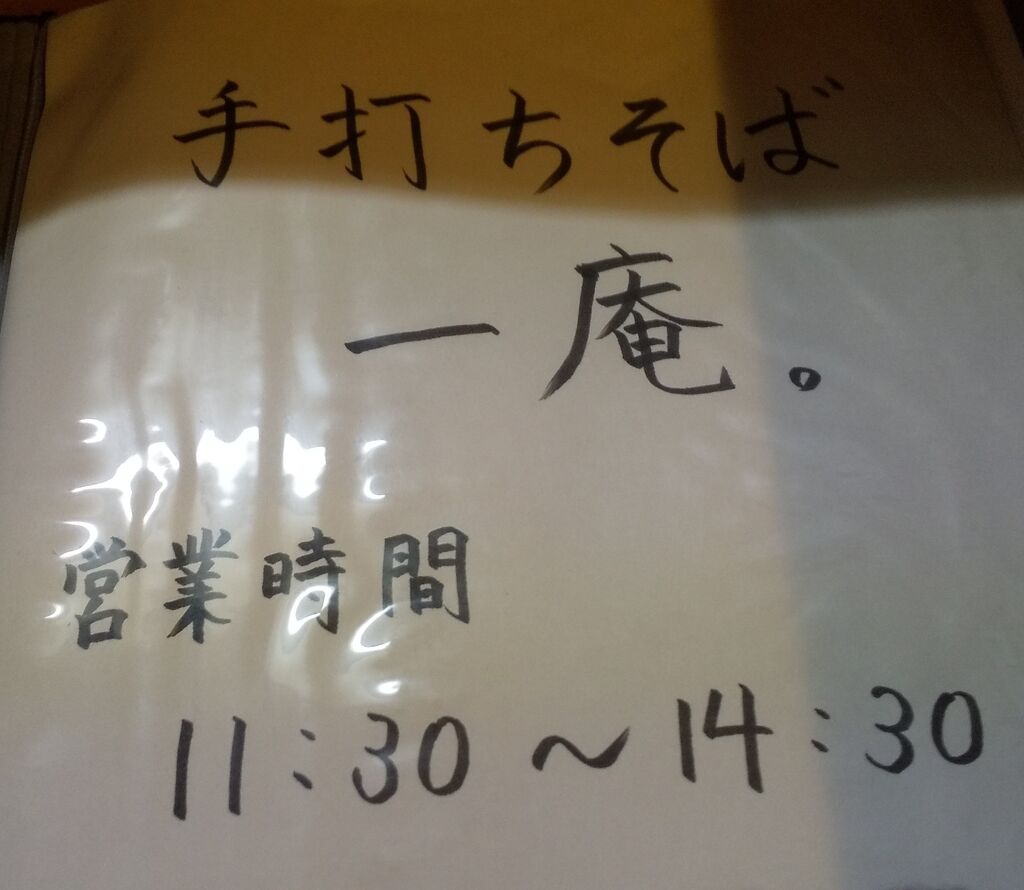 手打ちそば
一庵。
営業時間
11:30~14:30